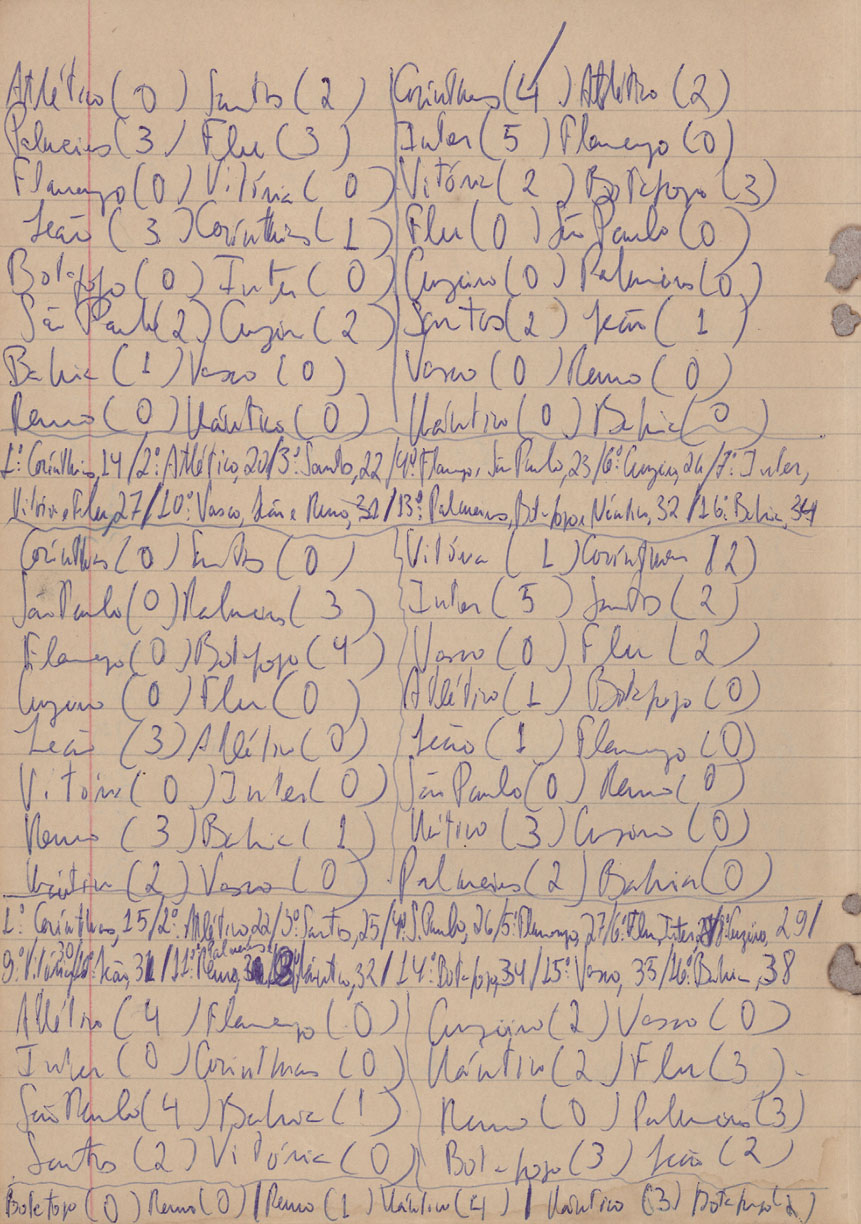 Atlético (0) Santos (2) Corinthians (4) Atlético (2)
Palmeiras (3) Flu (3) Inter (5) Flamengo (0)
Flamengo (0) Vitória (0) Vitória (2) Botafogo (3)
Leão (3) Corinthians (1) Flu (0) São Paulo (0)
Botafogo (0) Inter (0) Cruzeiro (0) Palmeiras (0)
São Paulo (2) Cruzeiro (2) Santos (2) Leão (1)
Bahia (1) Vasco (0) Vasco (0) Remo (0)
Remo (0) Náutico (0) Náutico (0) Bahia (0)
1º Corinthians, 14 / 2º Atlético, 20 / 3º Santos, 22 / 4º Flamengo, São Paulo, 23 / 6º Cruzeiro, 26 / 7º Inter,
Vitória e Flu, 27 / 10º Vasco, Leão e Remo, 31 / 13º Palmeiras, Botafogo e Náutico, 32 / 16º Bahia, 34
Corinthians (0) Santos (0) Vitória (1) Corinthians (2)
São Paulo (0) Palmeiras (3) Inter (5) Santos (2)
Flamengo (0) Botafogo (4) Vasco (0) Flu (2)
Cruzeiro (0) Flu (0) Atlético (1) Botafogo (0)
Leão (3) Atlético (0) Leão (1) Flamengo (0)
Vitória (0) Inter (0) São Paulo (0) Remo (0)
Remo (3) Bahia (1) Náutico (3) Cruzeiro (0)
Náutico (2) Vasco (0) Palmeiras (2) Bahia (0)
1º Corinthians, 15 / 2º Atlético, 22 / 3º Santos, 25 / 4º S. Paulo, 26 / 5º Flamengo, 27 / 6º Flu, Inter, 28 / 8º Cruzeiro, 29 /
9º Vitória, 30 / 10º Leão, 31 / 11º Remo, Palmeiras e Náutico, 32 / 14º Botafogo, 34 / 15º Vasco, 35 / 16º Bahia, 38
Atlético (4) Flamengo (0) Cruzeiro (2) Vasco (0)
Inter (0) Corinthians (0) Náutico (2) Flu (3)
São Paulo (4) Bahia (1) Remo (0) Palmeiras (3)
Santos (2) Vitória (0) Botafogo (3) Leão (2)
Botafogo (0) Remo (0) / Remo (1) Náutico (4) / Náutico (3) Botafogo (2)